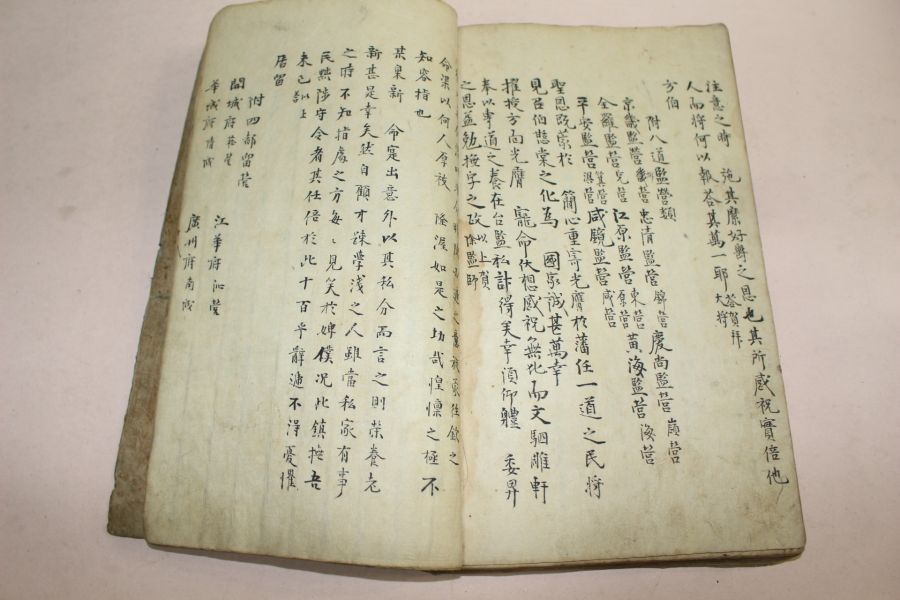 注意之時 施其縻好爵之恩也其所感祝實倍他
人而將何以報答其萬一耶 答賀拜大將
方伯
附八道監營類
京畿監營 畿營 忠淸監營 錦營 慶尙監營 嶺營
全羅監營 完營 江原監營 東營 原營 黃海監營 海營
平安監營 箕營 浿營 咸鏡監營 咸營
聖恩旣蒙於 簡心重寄光膺於藩任一道之民將
見臣伯憩棠之化爲 國家誠甚萬幸
擢授方面光膺 寵命伏想感祝無比而文駟雕軒
奉以事道之養在台監私計得矣幸須仰體 委畀
之恩益勉撫字之政 以上賀除監師
命渠以何人厚被 隆渥如是之功哉惶懍之極不
知容措也
某臬新 命寔出意外以其私分而言之則榮養老
新甚是幸矣然自顧才疎學淺之人雖當私家有事
之時不知指處之方每每見笑於婢僕況此鎭撫吾
民黜陟守令者其任倍於此十百乎辭遞不得憂懼
未已 以上
居留
附四都留營
開城府 江華府 沁營
華城府 廣州府 南城